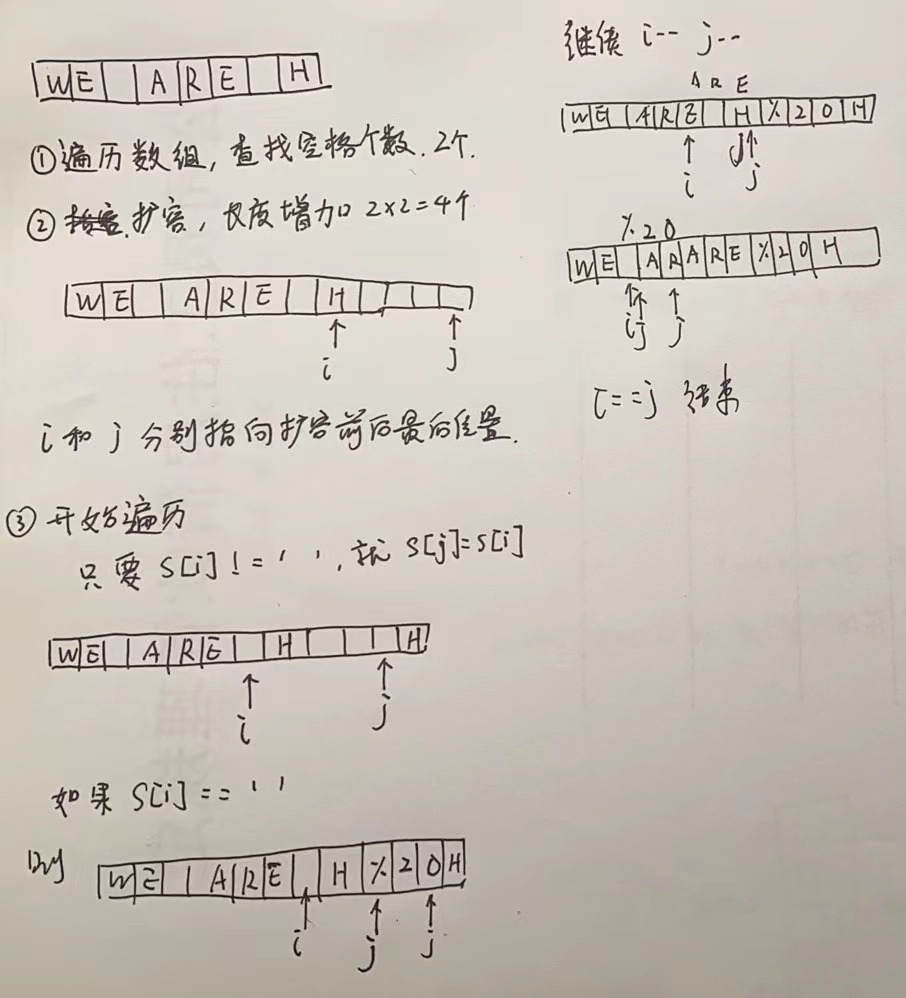 WE ARE H
①遍历数组，查找空格个数．2个．
② 扩容，长度增加 2×2=4个
WE ARE H
i j
i 和 j 分别指向扩容前后最后位置．
③ 开始遍历
只要 S[i] != ' '，就 S[j]=S[i]
WE ARE H H
i j
如果 S[i] == ' '
则
WE ARE H%20H
i j j
继续 i-- j--
A R E
WE ARE H%20H
i j j
%20
WE ARARE%20H
i j j
i==j 结束